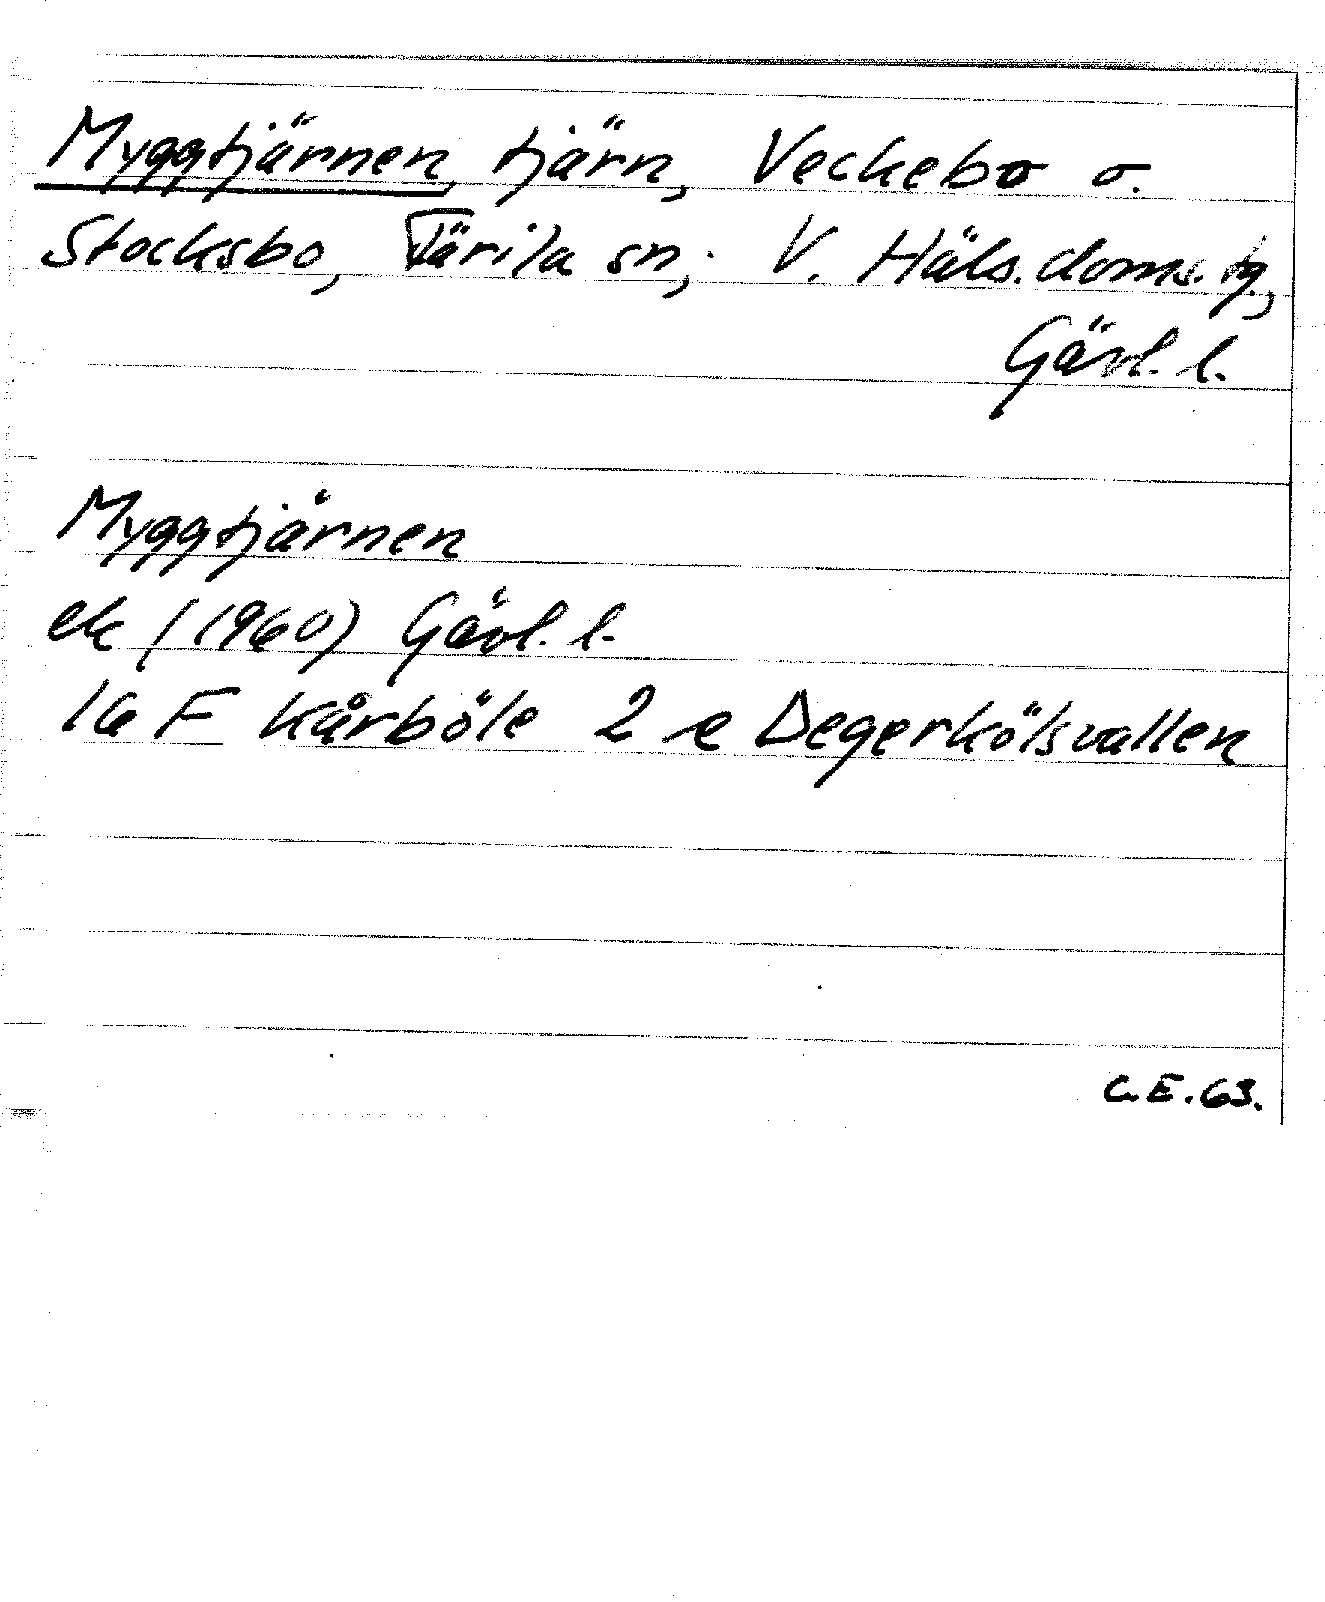 Myggtjärnen, tjärn, Veckebo o.
Stocksbo, Färila sn, V. Häls. doms. tg,
Gävl. l.
Myggtjärnen
ek (1960) Gävl. l.
16 F Kårböle 2 e Degerkölsvallen
C.E. 63.